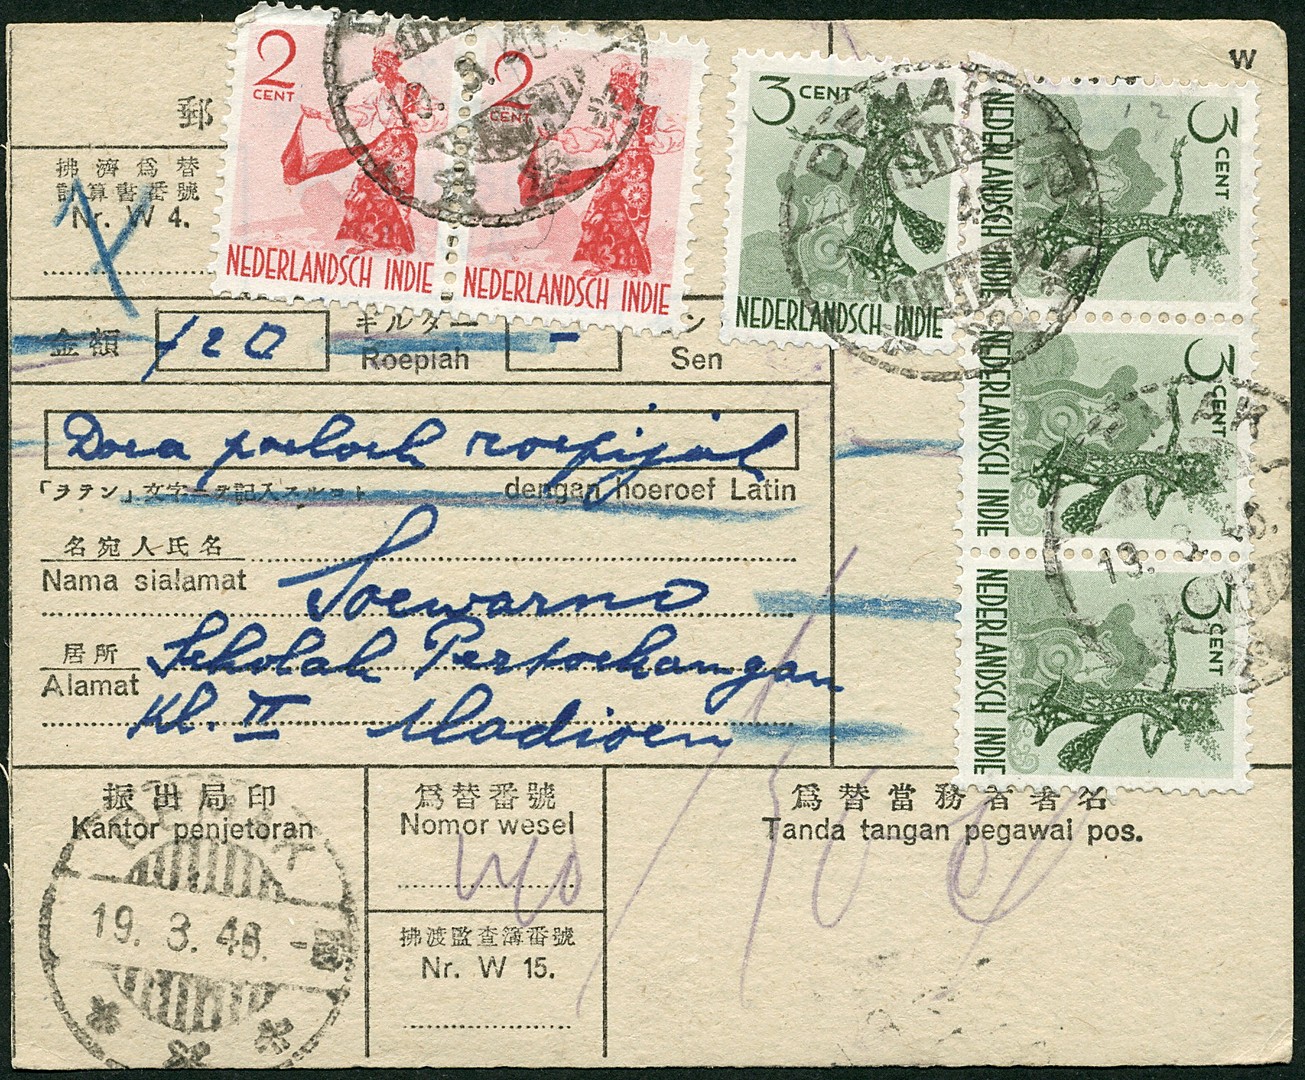 W
郵
2 CENT
NEDERLANDSCH INDIE
2 CENT
NEDERLANDSCH INDIE
3 CENT
NEDERLANDSCH INDIE
3 CENT
NEDERLANDSCH INDIE
3 CENT
NEDERLANDSCH INDIE
3 CENT
NEDERLANDSCH INDIE
19. 3. 48
DEMAK
19. 3. 48.
拂濟爲替
計算書番號
Nr. W 4.
金額 120 ギルター - ン
Roepiah Sen
Doea poeloeh roepijah
「ラテン」文字ニテ記入スルコト dengan hoeroef Latin
名宛人氏名
Nama sialamat Soewarno
居所
Alamat Sekolah Pertoekangan
Kl. II Madioen
振出局印
Kantor penjetoran
DEMAK
19. 3. 48. -
爲替番號
Nomor wesel
拂渡監査簿番號
Nr. W 15.
爲替當務省署名
Tanda tangan pegawai pos.